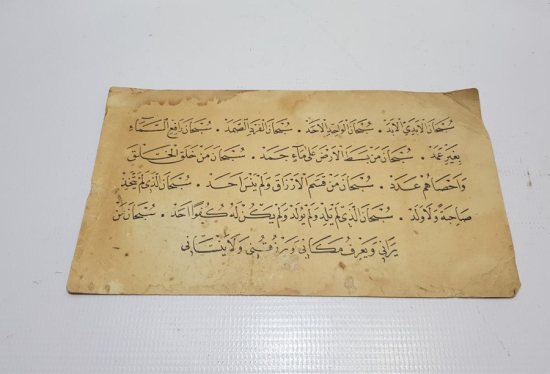 سُبْحَانَ الْاَبَدِيِّ الْاَبَدْ . سُبْحَانَ الْوَاحِدِ الْاَحَدْ . سُبْحَانَ الْفَرْدِ الصَّمَدْ . سُبْحَانَ رَافِعِ السَّمَآءِ
بِغَيْرِ عَمَدْ . سُبْحَانَ مَنْ بَسَطَ الْاَرْضَ عَلٰى مَاءٍ جَمَدْ . سُبْحَانَ مَنْ خَلَقَ الْخَلْقَ
وَاَحْصَاهُمْ عَدَدْ . سُبْحَانَ مَنْ قَسَمَ الْاَرْزَاقَ وَلَمْ يَنْسَ اَحَدْ . سُبْحَانَ الَّذِى لَمْ يَتَّخِذْ
صَاحِبَةً وَلَا وَلَدْ . سُبْحَانَ الَّذِى لَمْ يَلِدْ وَلَمْ يُولَدْ وَلَمْ يَكُنْ لَهُ كُفُوًا اَحَدْ . سُبْحَانَ مَنْ
يَرَانِى وَيَعْرِفُ مَكَانِى وَرَزَقَنِى وَلَا يَنْسَانِى